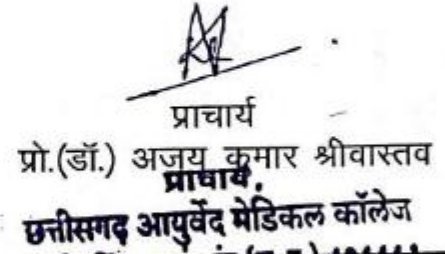 प्राचार्य
प्रो.(डॉ.) अजय कुमार श्रीवास्तव
प्राचार्य,
छत्तीसगढ़ आयुर्वेद मेडिकल कॉलेज